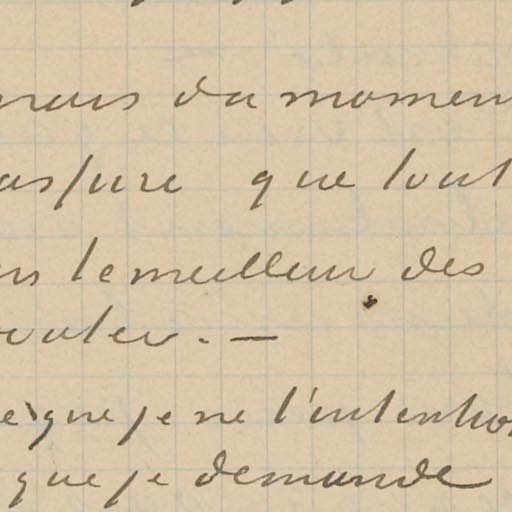 mais du momen
assure que tout
le meilleur des
que je ne l'intention
que je demande